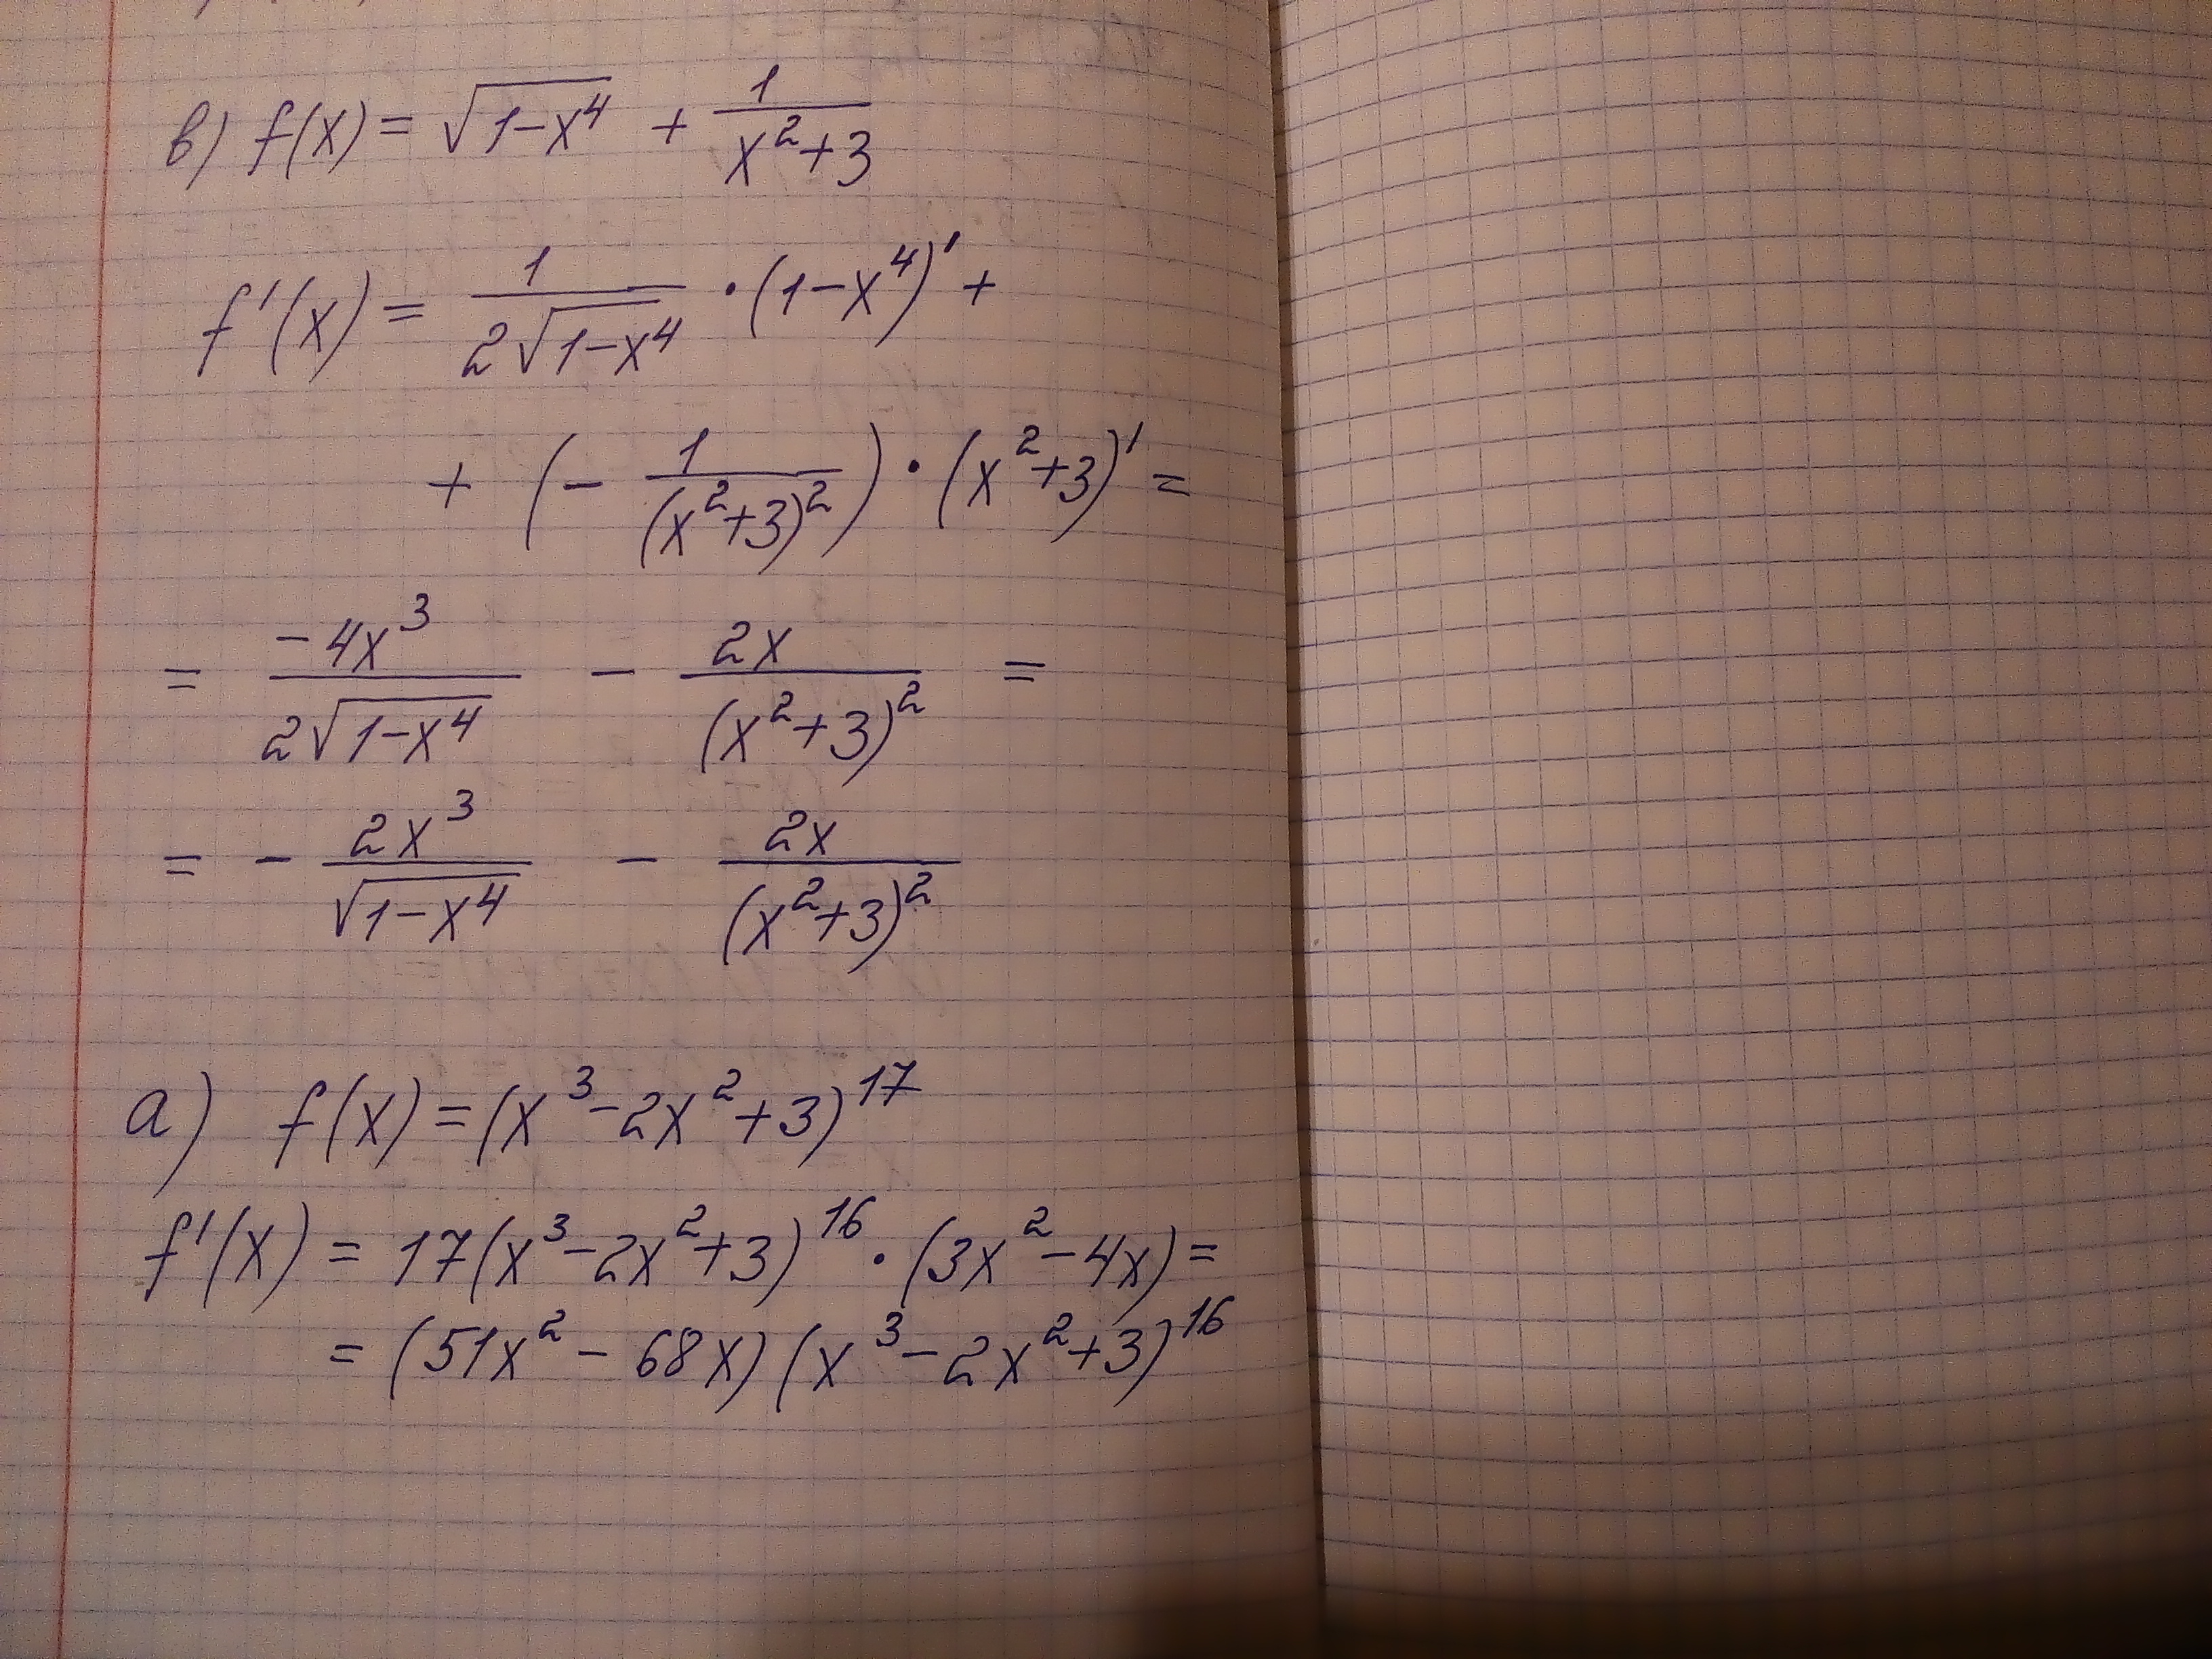 в) f(x) = √(1-x⁴) + 1/(x²+3)
f'(x) = 1/(2√(1-x⁴)) · (1-x⁴)' +
+ (- 1/(x²+3)²) · (x²+3)' =
= -4x³/(2√(1-x⁴)) - 2x/(x²+3)² =
= - 2x³/√(1-x⁴) - 2x/(x²+3)²
а) f(x) = (x³-2x²+3)¹⁷
f'(x) = 17(x³-2x²+3)¹⁶ · (3x²-4x) =
= (51x² - 68x)(x³-2x²+3)¹⁶